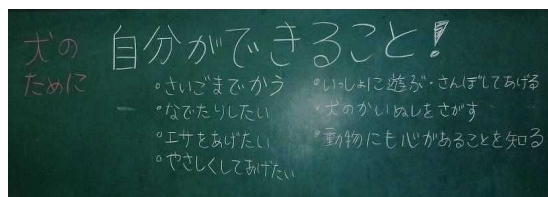 犬の
ために
自分ができること!
°さいごまでかう
°なでたりしたい
°エサをあげたい
°やさしくしてあげたい
°いっしょに遊ぶ・さんぽしてあげる
°犬のかいぬしをさがす
°動物にも心があることを知る